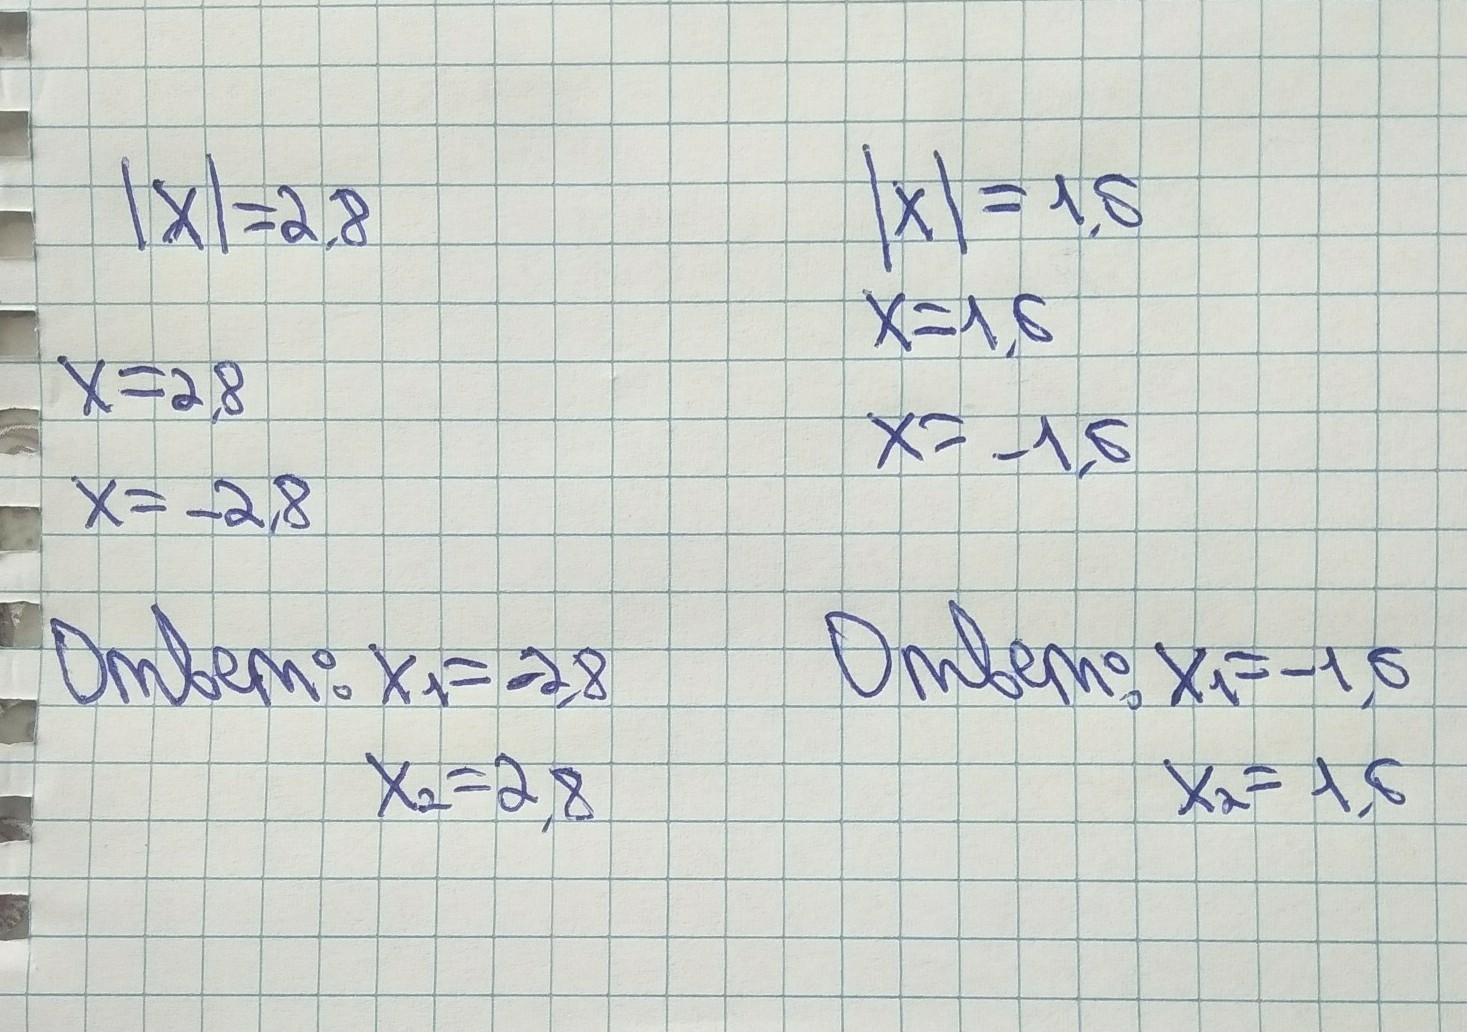 |x|=2,8
x=2,8
x=-2,8
Ответ: x₁=-2,8
x₂=2,8
|x|=1,6
x=1,6
x=-1,6
Ответ: x₁=-1,6
x₂=1,6